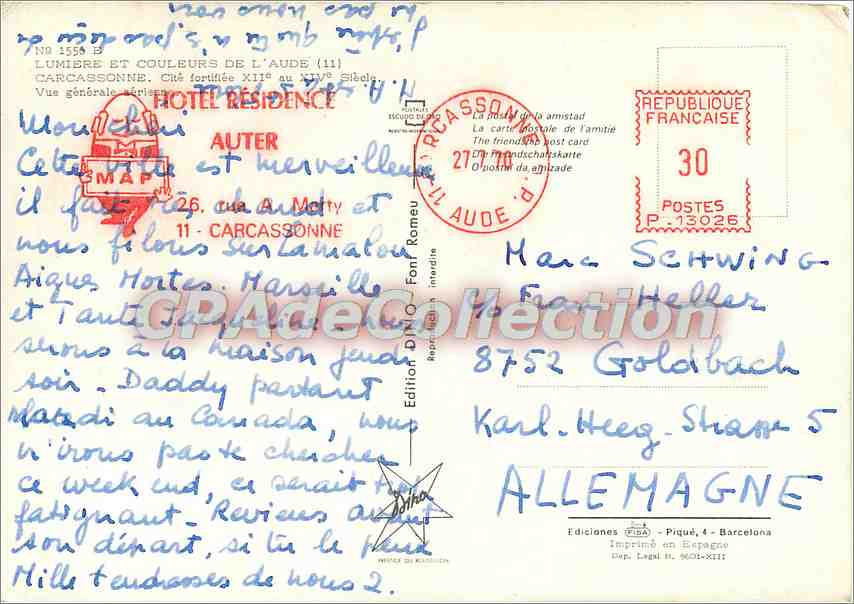 Nº 1550 B
LUMIERE ET COULEURS DE L'AUDE (11)
CARCASSONNE. Cité fortifiée XIIe au XIVe Siècle.
Vue générale aérienne
HOTEL RESIDENCE
AUTER
MAP
26, rue A. Marty
11 - CARCASSONNE
Mon chéri
Cette ville est merveilleuse
il fait très chaud et
nous filons sur Lamalou
Aigues Mortes. Marseille
et Tante Jacqueline - nous
serons à la maison jeudi
soir - Daddy partant
Mardi au Canada, nous
n'irons pas te chercher
ce week end, ce serait trop
fatigant - Reviens avant
son départ, si tu le peux
Mille tendresses de nous 2.
J'espère que tu n'as pas besoin de
ou pas nous voir
POSTALES
ESCUDO DE ORO
La postal de la amistad
La carte postale de l'amitié
The friendship post card
Die Freundschaftskarte
O postal da amizade
CARCASSONNE R. P.
27-7 70
11 - AUDE
REPUBLIQUE
FRANCAISE
30
POSTES
P.13026
Edition DINO - Font Romeu
Reproduction interdite
Dino
Marc SCHWING
c/o Frau Heller
8752 Goldbach
Karl-Heeg-Strasse 5
ALLEMAGNE
Ediciones FISA - Piqué, 4 - Barcelona
Imprimé en Espagne
Dep. Legal B. 9601-XIII
CPAdeCollection